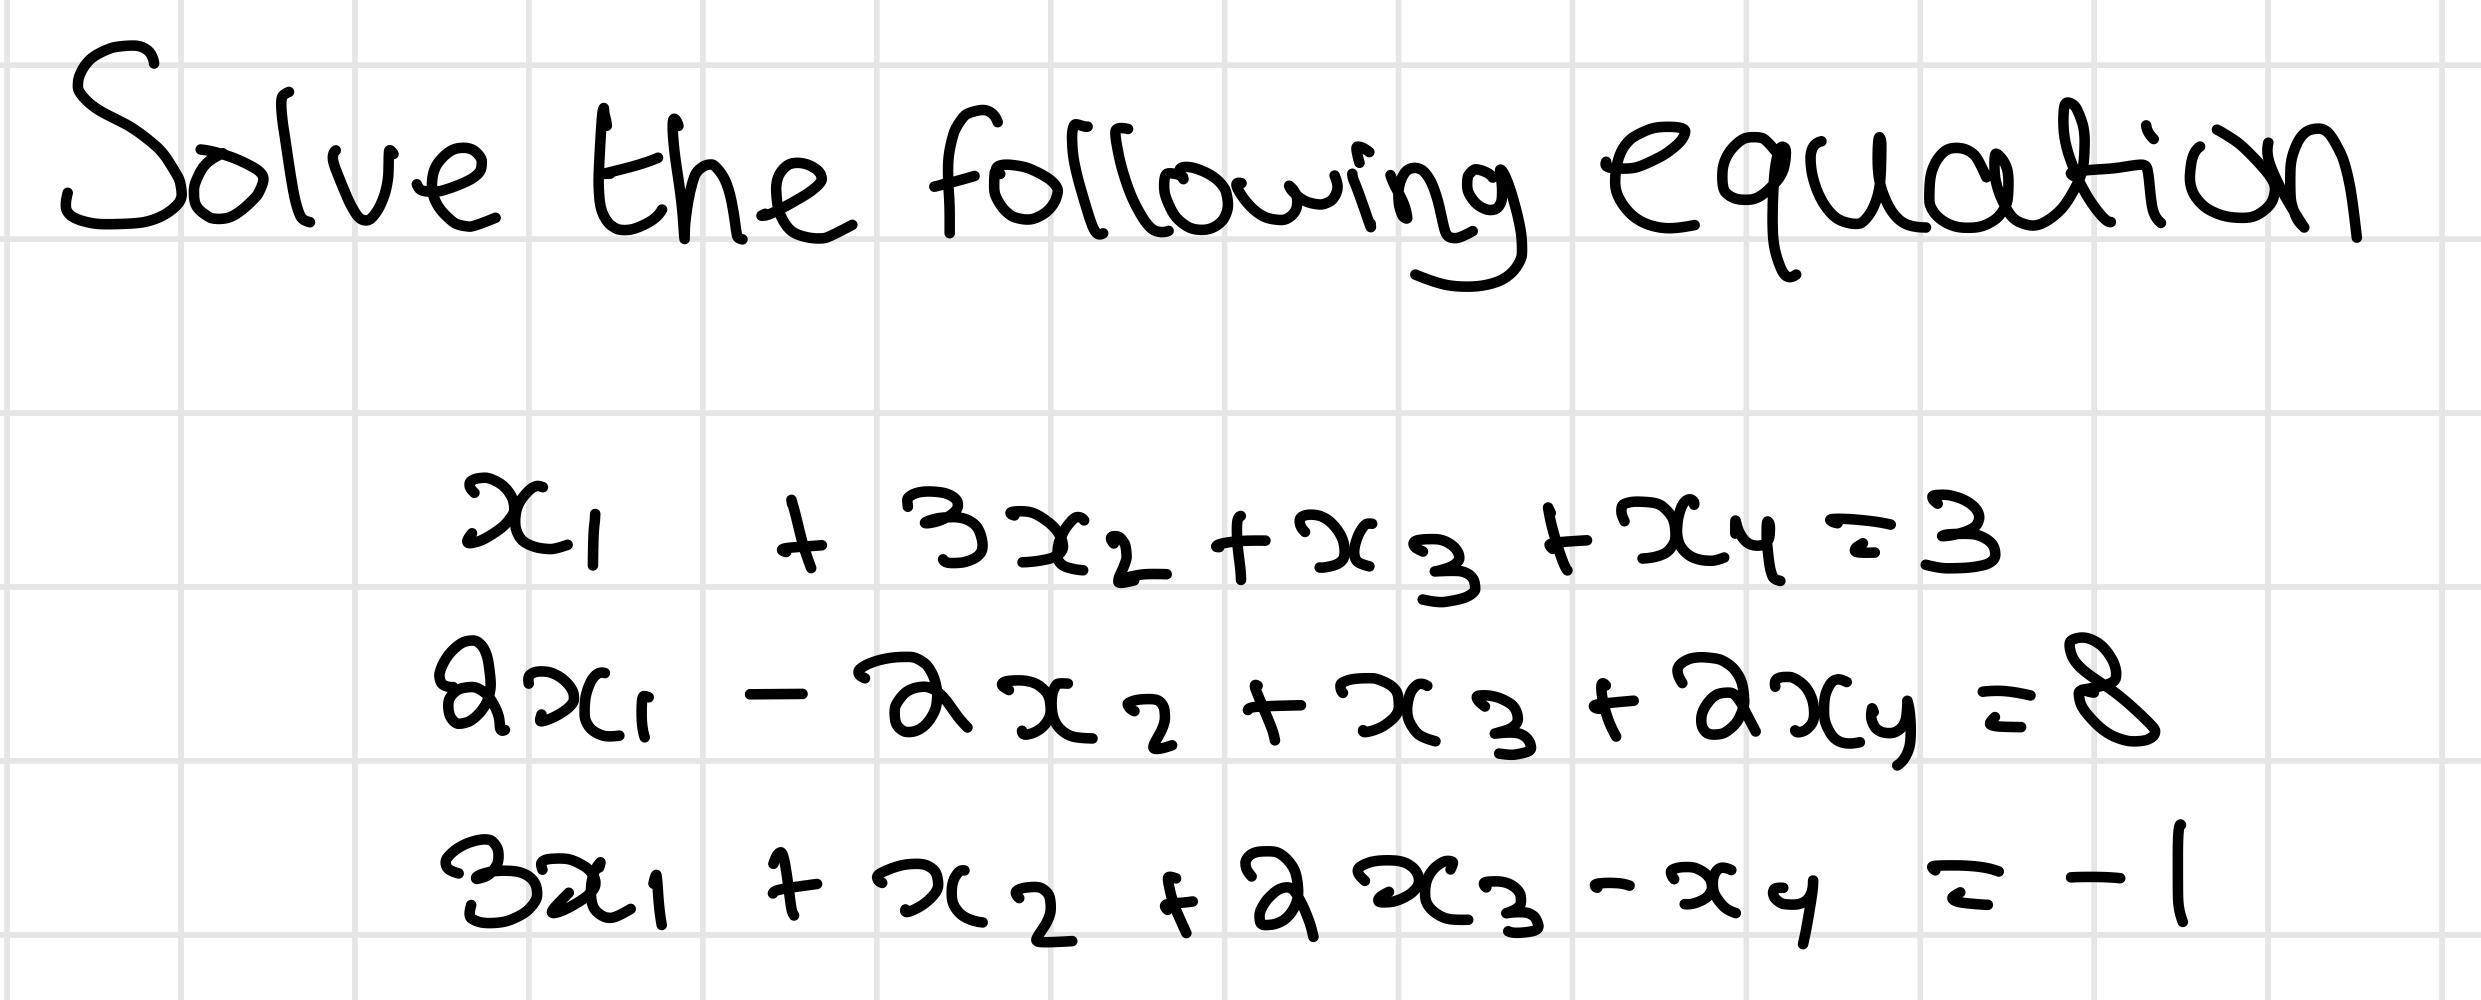 Solve the following equation
x₁ + 3x₂ + x₃ + x₄ = 3
2x₁ - 2x₂ + x₃ + 2x₄ = 8
3x₁ + x₂ + 2x₃ - x₄ = -1